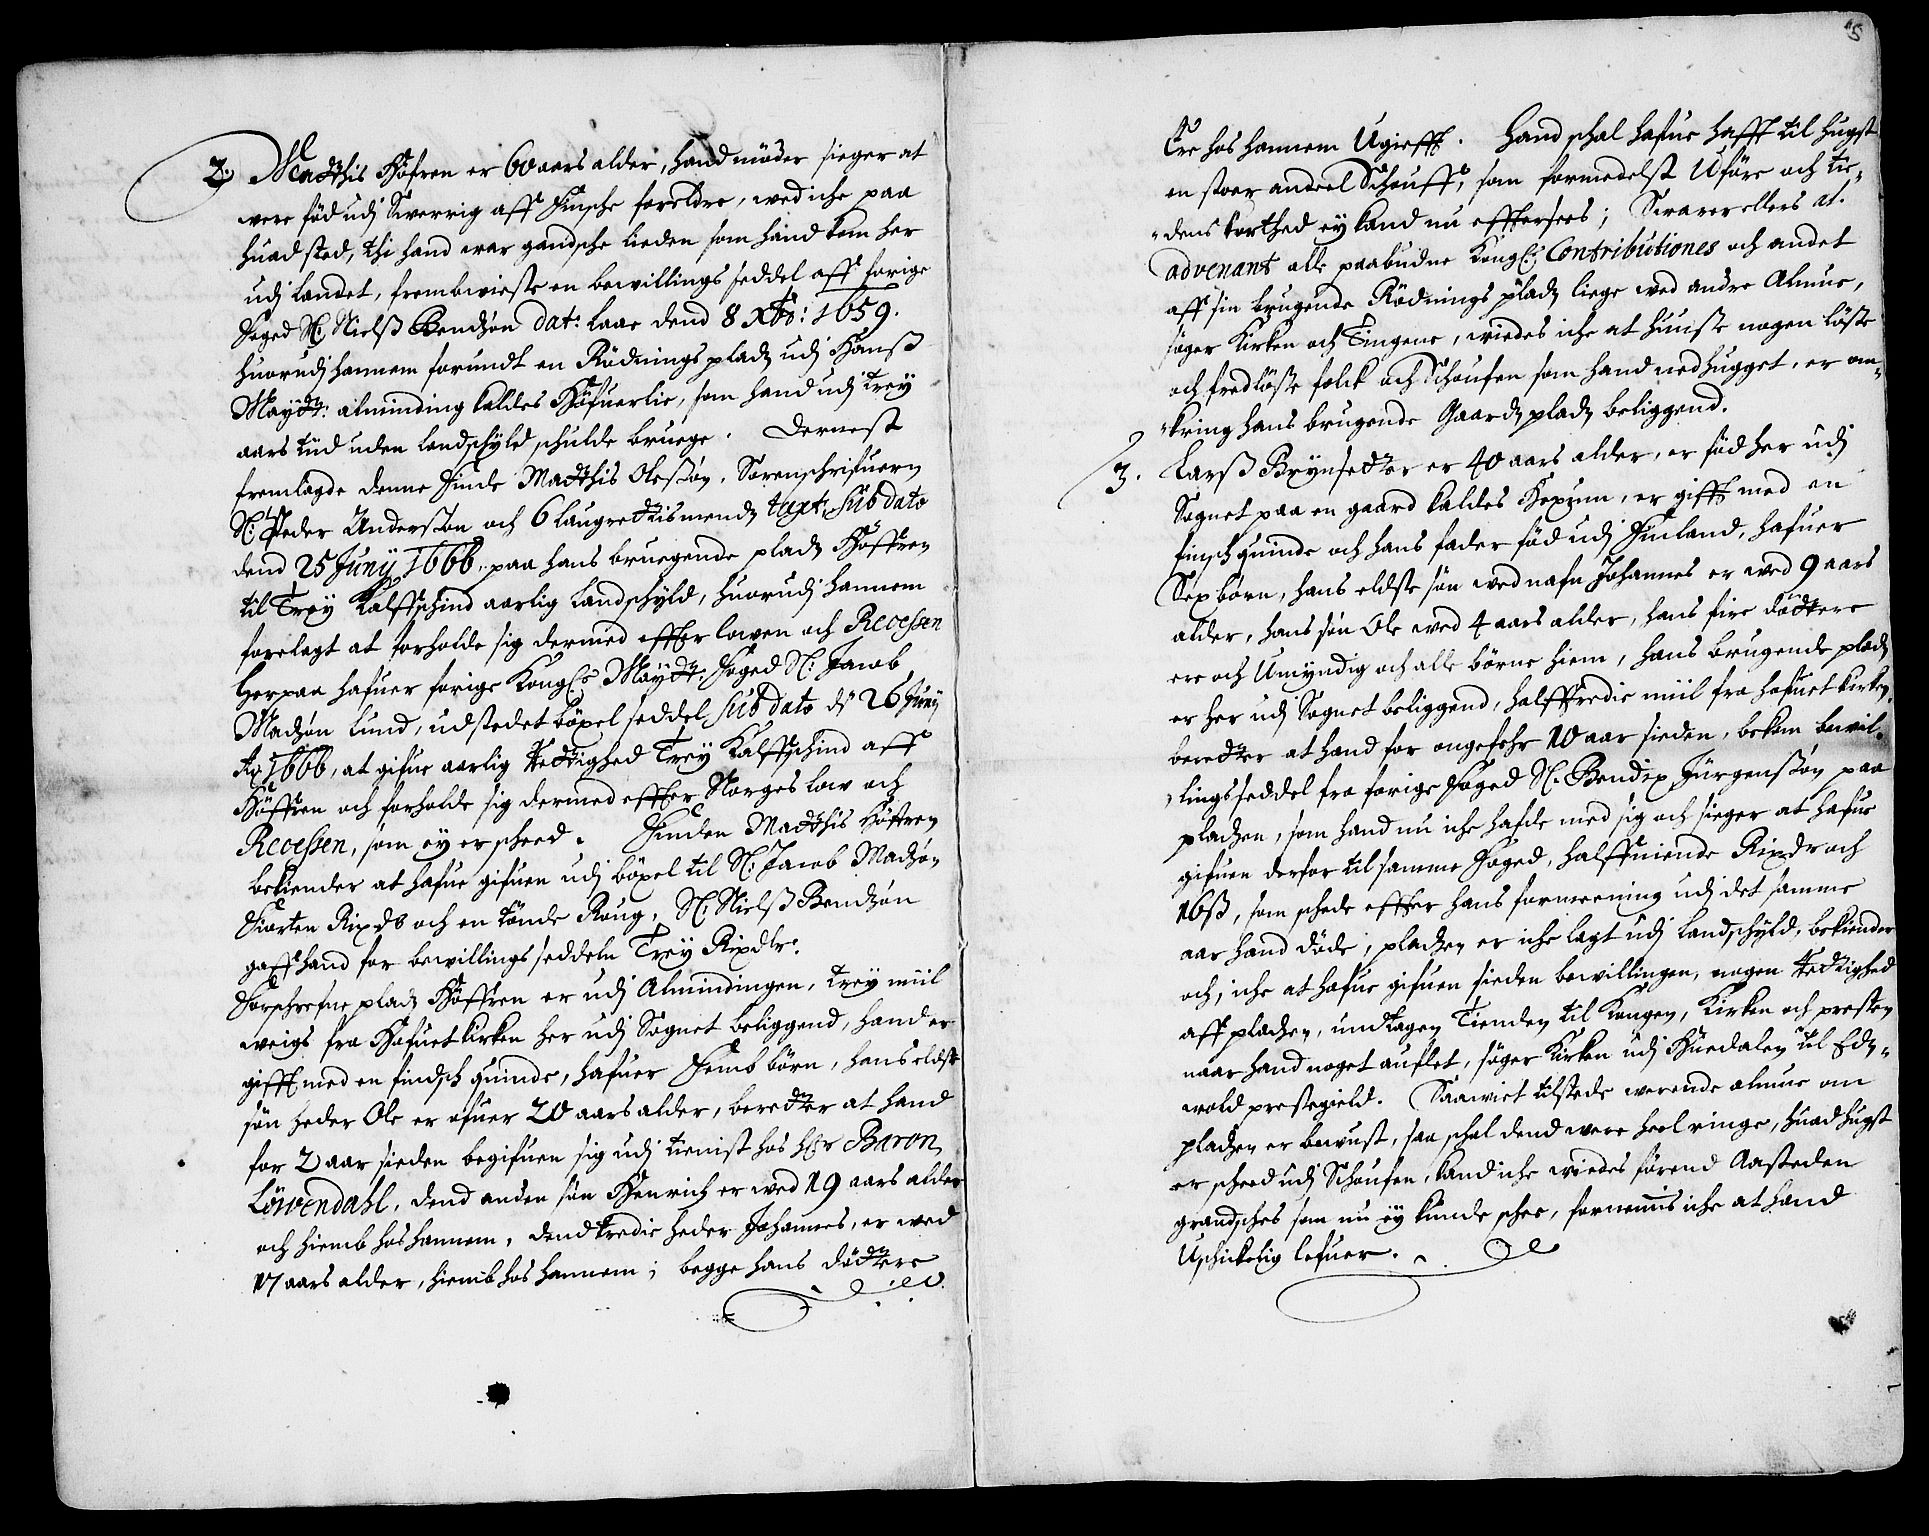 2. Matthis Höfren er 60 aars alder, hand möder sieger at
vere föd udj Sverrig aff Finsche foreldre, wed iche paa
huad sted, thi hand war gandsche lieden som hand kom her
udj landet, frembwieste en bewillings seddel aff forige
Foged Sl: Nielß Bendzøn dat: laar dend 8 Xbr: 1659.
huorudj hannem forundt en Rödnings pladz udj Hanß
Maÿtt: alminding kaldes Höfuerlie, som hand udj treÿ
aars tiid uden landschÿld schulde bruege. Dernest
fremlagde denne Finde Matthis Olesßøn, Sorenschrifueren
Sl: Peder Anderssøn och 6 laugrettismendz taxt, sub dato
dend 25 Junÿ 1666. paa hans bruegende pladz Höffren
til Treÿ Kalfschind aarlig landschÿld, huorudj hannem
forelagt at forholde sig dermed effter lowen och Recessen
Herpaa hafuer forige Kongl: Maÿtt: Foged Sl: Jacob
Madzøn Lund, udstedet böxel seddel sub dato d: 26 Junÿ
Ao 1666, at gifue aarlig Rettighed Treÿ Kalfschind aff
Höffren och forholde sig dermed effter Norges low och
Recessen, som eÿ er scheed. Finden Matthis Höffren
bekiender at hafue gifuen udj böxel til Sl: Jacob Madzøn
Fiorten Rixdr och en tönde Roug, Sl: Nielß Bendzøn
gaff hand for bewillings seddeln Treÿ Rixdlr.
Forschrefne pladz Höffren er udj Almindingen, treÿ miil
weigs fra Hofuetkirken her udj Sognet beliggend, hand er
gifft med en findsch quinde, hafuer Femb börn, hans eldste
søn heder Ole er ofuer 20 aars alder, beretter at hand
for 2 aar sieden begifuen sig udj tienist hos Hr Baron
Löwendahl, dend anden søn Henrich er wed 19 aars alder
och hiemb hos hannem, dend tredie heder Johannes, er wed
17 aars alder, hiemb hos hannem; begge hans döttere
5
Ere hos hannem Ugiefft. Hand schal hafue hafft til hugst
en stoer andeel Schouff, som formedelst Uföre och tie-
dens korthed eÿ kand nu efftersees; Swarer ellers at
advenant alle paabudne Kongl: Contributiones och andet
aff sin brugende Rödnings pladz liege wed andre Almue,
söger Kirken och Tingene, wiedes iche at huuse nogen löse
och fredlöse folck och Schoufen som hand nedhugget, er om-
kring hans brugende Gaardz pladz beliggend.
3. Larß Brÿnsetter er 40 aars alder, er föd her udj
Sognet paa en gaard kaldes Hexum, er gifft med en
finsch quinde och hans fader föd udj Finland, hafuer
Sex börn, hans eldste søn wed nafn Johannes er wed 9 aars
alder, hans søn Ole wed 4 aars alder, hans fire döttere
ere och Umÿndig och alle börne hiem, hans brugende pladz
er her udj Sognet beliggend, halftredie miil fra hofuetkirken,
beretter at hand for ongefehr 10 aar sieden, bekom bewil-
lings seddel fra forige Foged Sl: Bendix Jürgensßøn paa
pladzen, som hand nu iche hafde med sig och sieger at hafue
gifuen derfor til samme Foged, halffniende Rixdr och
16ß, som schede effter hans formeening udj det samme
aar hand döde, pladzen er iche lagt udj landschÿld, bekiender
och, iche at hafue gifuen sieden bewillingen, nogen Rettighed
aff pladzen, undtagen Tienden til Kongen, Kirken och presten
naar hand noget auflet, söger Kirken udj Huedalen til Edz-
wold prestegield. Saawiet tilstede werende almue om
pladzen er bewust, saa schal dend were heel ringe, huad hugst
er scheed udj Schoufen, kand iche wiedes förend Aasteden
grandsches som nu eÿ kunde schee, fornemmis iche at hand
Uschickelig lefuer.